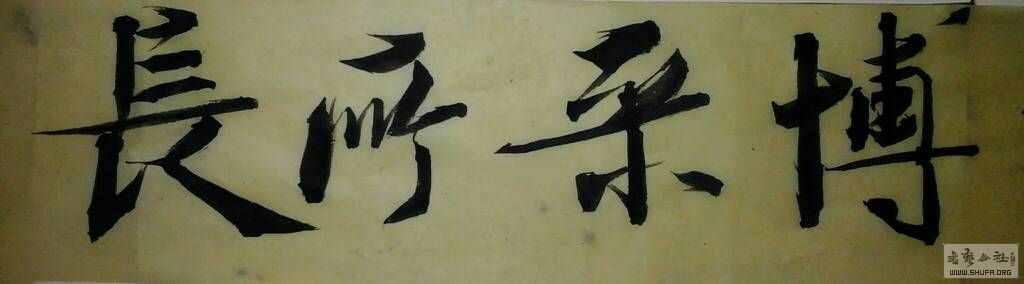 博采所長
書藝公社
WWW.SHUFA.ORG